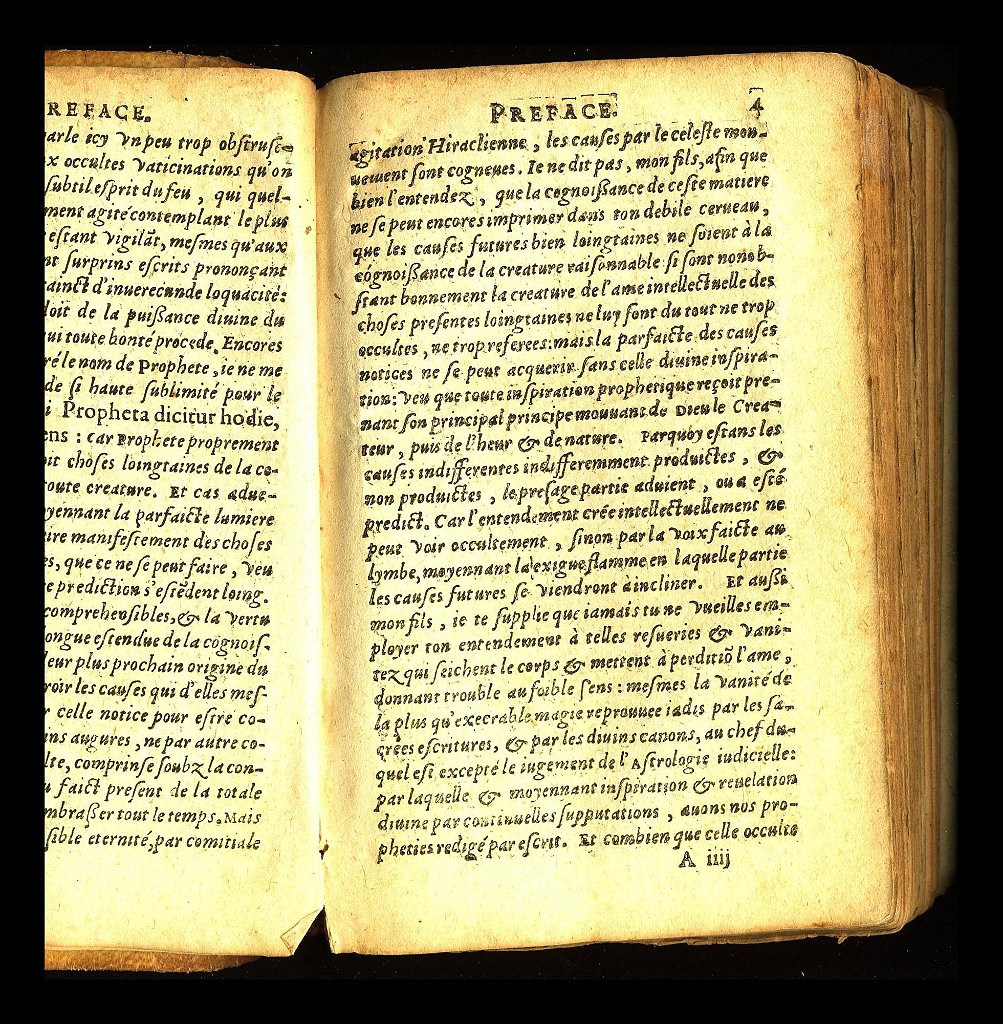 REFACE.
parle icy vn peu trop obstruse-
x occultes vaticinations qu'on
subtil esprit du feu , qui quel-
ment agité contemplant le plus
estant vigilãt, mesmes qu'aux
nt surprins escrits prononçant
ainct d'inuerecunde loquacité:
doit de la puißance diuine du
ui toute bonté procede. Encores
ré le nom de Prophete, ie ne me
de si haute sublimité pour le
i Propheta dicitur hodie,
ens : car Prophete proprement
oit choses loingtaines de la co-
toute creature. Et cas adue-
yennant la parfaicte lumiere
ire manifestement des choses
es, que ce ne se peut faire , veu
e prediction s'estẽdent loing.
comprehensibles, & la vertu
ongue estendue de la cognois-
leur plus prochain origine du
roir les causes qui d'elles mes-
r celle notice pour estre co-
ins augures , ne par autre co-
lte, comprinse soubz la con-
u faict present de la totale
mbraßer tout le temps. Mais
sible eternité, par comitiale
PREFACE. 4
agitation Hiraclienne , les causes par le celeste mou-
uement sont cogneues. Ie ne dit pas , mon fils, afin que
bien l'entendez , que la cognoißance de ceste matiere
ne se peut encores imprimer dans ton debile cerueau,
que les causes futures bien loingtaines ne soient à la
cognoißance de la creature raisonnable si sont nonob-
stant bonnement la creature de l'ame intellectuelle des
choses presentes loingtaines ne luy sont du tout ne trop
occultes , ne trop referees: mais la parfaicte des causes
notices ne se peut acquerir sans celle diuine inspira-
tion: veu que toute inspiration prophetique reçoit pre-
nant son principal principe mouuant de Dieu le Crea-
teur , puis de l'heur & de nature. Parquoy estans les
causes indifferentes indifferemment produictes , &
non produictes , le presage partie aduient , ou a esté
predict. Car l'entendement crée intellectuellement ne
peut voir occultement , sinon par la voix faicte au
lymbe, moyennant la exigue flamme en laquelle partie
les causes futures se viendront à incliner. Et aussi
mon fils , ie te supplie que iamais tu ne vueilles em-
ployer ton entendement à telles resueries & vani-
tez qui seichent le corps & mettent à perditiõ l'ame,
donnant trouble au foible sens : mesmes la vanité de
la plus qu'execrable magie reprouuee iadis par les sa-
crées escritures, & par les diuins canons, au chef du-
quel est excepté le iugement de l'Astrologie iudicielle:
par laquelle & moyennant inspiration & reuelation
diuine par continuelles supputations , auons nos pro-
pheties redigé par escrit. Et combien que celle occulte
A iiij